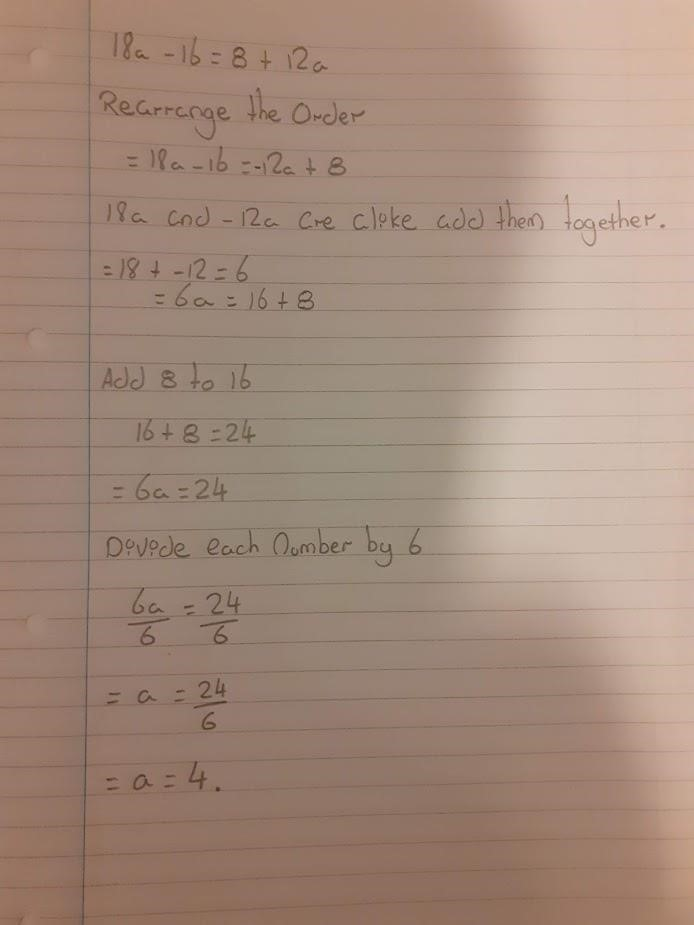 18a - 16 = 8 + 12a
Rearrange the Order
= 18a - 16 = -12a + 8
18a and - 12a are alike add them together.
= 18 + -12 = 6
= 6a = 16 + 8
Add 8 to 16
16 + 8 = 24
= 6a = 24
Divide each Number by 6
6a/6 = 24/6
= a = 24/6
= a = 4.